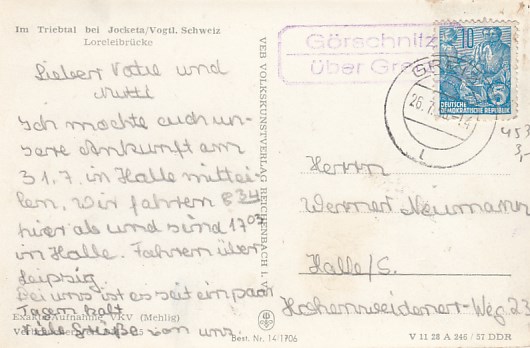 Im Triebtal bei Jocketa/Vogtl. Schweiz
Loreleibrücke
Lieber Vater und
Mutti
Ich möchte euch un-
sere Ankunft am
31.7. in Halle mittei-
len. Wir fahren 8 34
hier ab und sind 17 03
in Halle. Fahren über
Leipzig
Bei uns ist es seit ein paar
Tagen kalt
Viele Grüße von uns.
Exakt-Aufnahme VKV (Mehlig)
Best. Nr. 14/1706
VEB VOLKSKUNSTVERLAG REICHENBACH I. V.
Görschnitz
über Greiz
10
5
DEUTSCHE
DEMOKRATISCHE REPUBLIK
GREIZ
26.7.
453
3,-
Herrn
Werner Neumann
Halle/S.
Hohenweidener-Weg 23
V 11 28 A 246 / 57 DDR